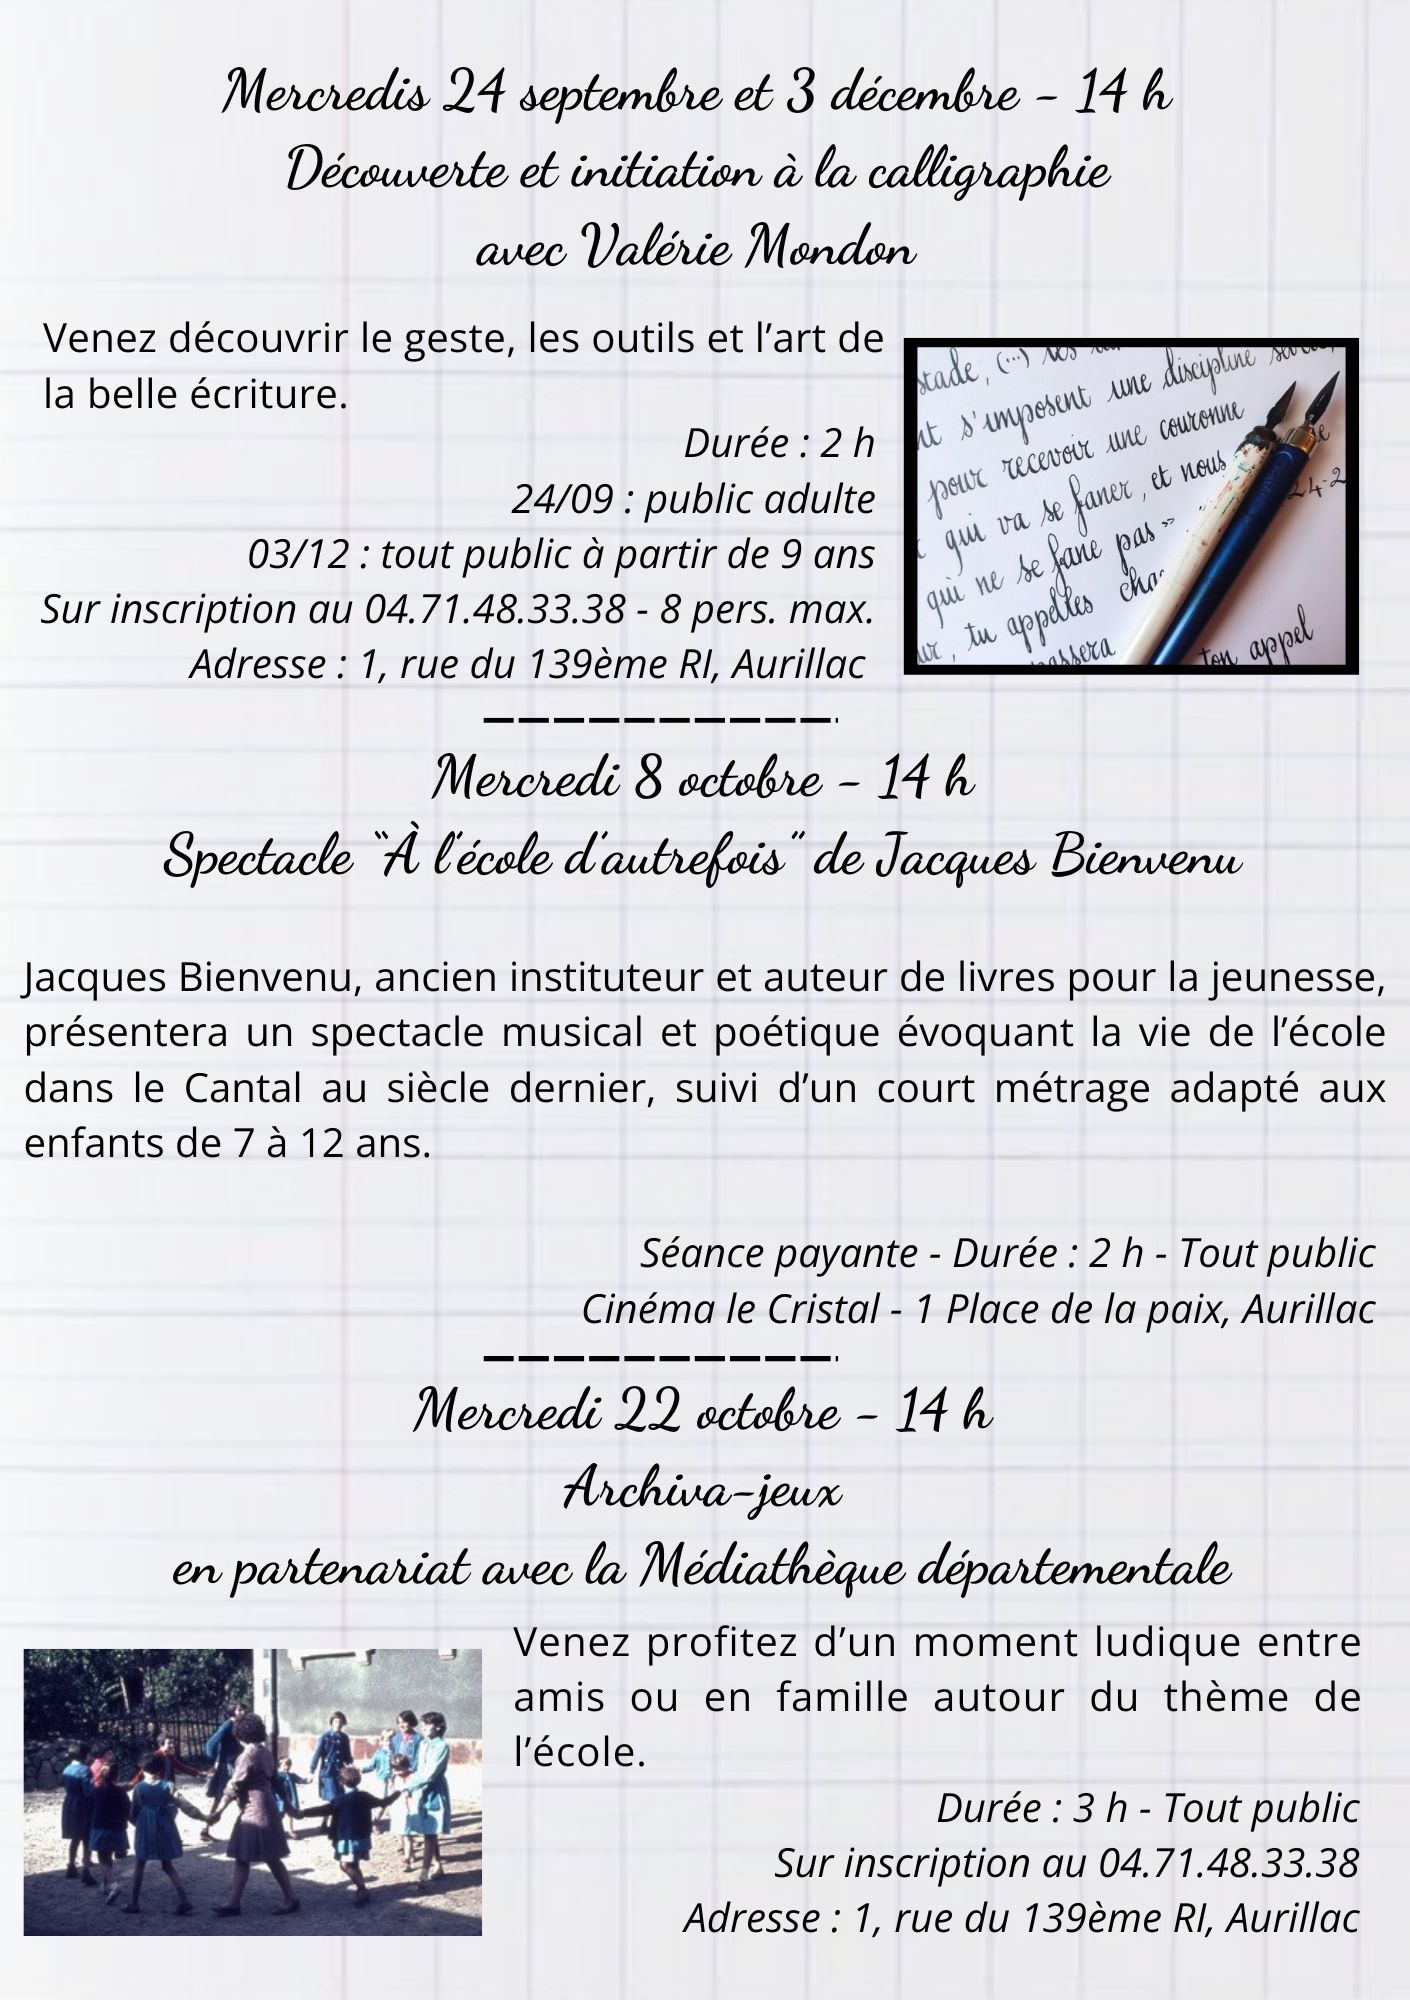 Mercredis 24 septembre et 3 décembre - 14 h
Découverte et initiation à la calligraphie
avec Valérie Mondon
Venez découvrir le geste, les outils et l’art de
la belle écriture.
Durée : 2 h
24/09 : public adulte
03/12 : tout public à partir de 9 ans
Sur inscription au 04.71.48.33.38 - 8 pers. max.
Adresse : 1, rue du 139ème RI, Aurillac
stade, (...)
s'imposent une discipline
pour recevoir une couronne
qui va se faner, et nous
qui ne se fane pas »
tu appelles
passera ton appel
Mercredi 8 octobre - 14 h
Spectacle “À l’école d’autrefois” de Jacques Bienvenu
Jacques Bienvenu, ancien instituteur et auteur de livres pour la jeunesse,
présentera un spectacle musical et poétique évoquant la vie de l’école
dans le Cantal au siècle dernier, suivi d’un court métrage adapté aux
enfants de 7 à 12 ans.
Séance payante - Durée : 2 h - Tout public
Cinéma le Cristal - 1 Place de la paix, Aurillac
Mercredi 22 octobre - 14 h
Archiva-jeux
en partenariat avec la Médiathèque départementale
Venez profitez d’un moment ludique entre
amis ou en famille autour du thème de
l’école.
Durée : 3 h - Tout public
Sur inscription au 04.71.48.33.38
Adresse : 1, rue du 139ème RI, Aurillac